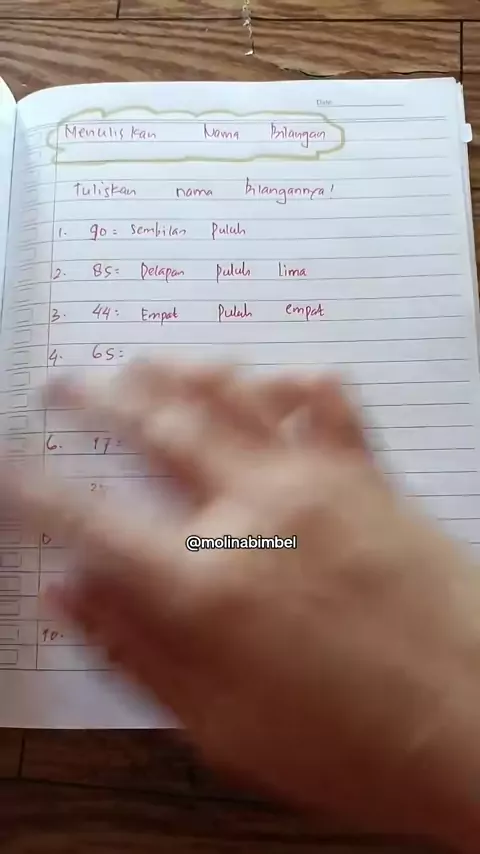 Date
Menuliskan Nama Bilangan
Tuliskan nama bilangannya!
1. 90 = Sembilan Puluh
2. 85 = Delapan puluh Lima
3. 44 : Empat Puluh empat
4. 65 =
6. 97 =
@molinabimbel
10.